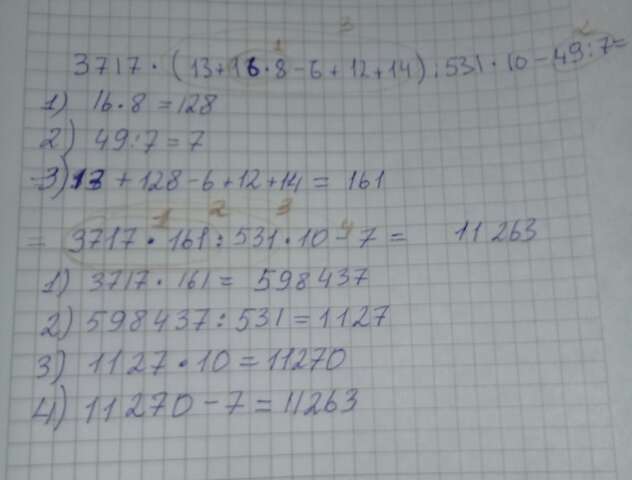 3
1 2
3717 · (13+16·8-6+12+14):531·10-49:7=
1) 16·8=128
2) 49:7=7
3) 13+128-6+12+14= 161
1 2 3 4
= 3717·161:531·10-7= 11263
1) 3717·161= 598437
2) 598437:531=1127
3) 1127·10=11270
4) 11270-7=11263